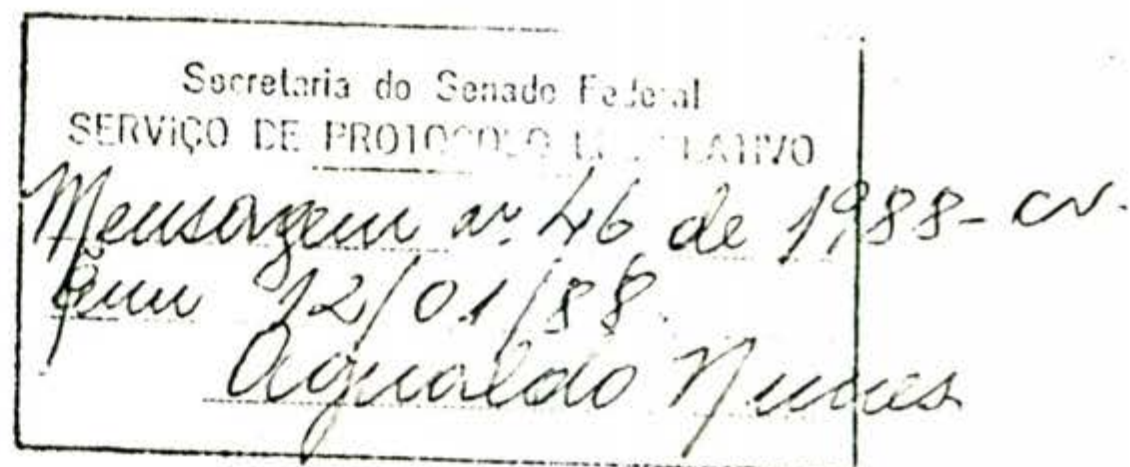 Secretaria do Senado Federal
SERVIÇO DE PROTOCOLO LEGISLATIVO
Mensagem nº 46 de 1988-CN.
Em 12/01/88.
Aguinaldo Nunes